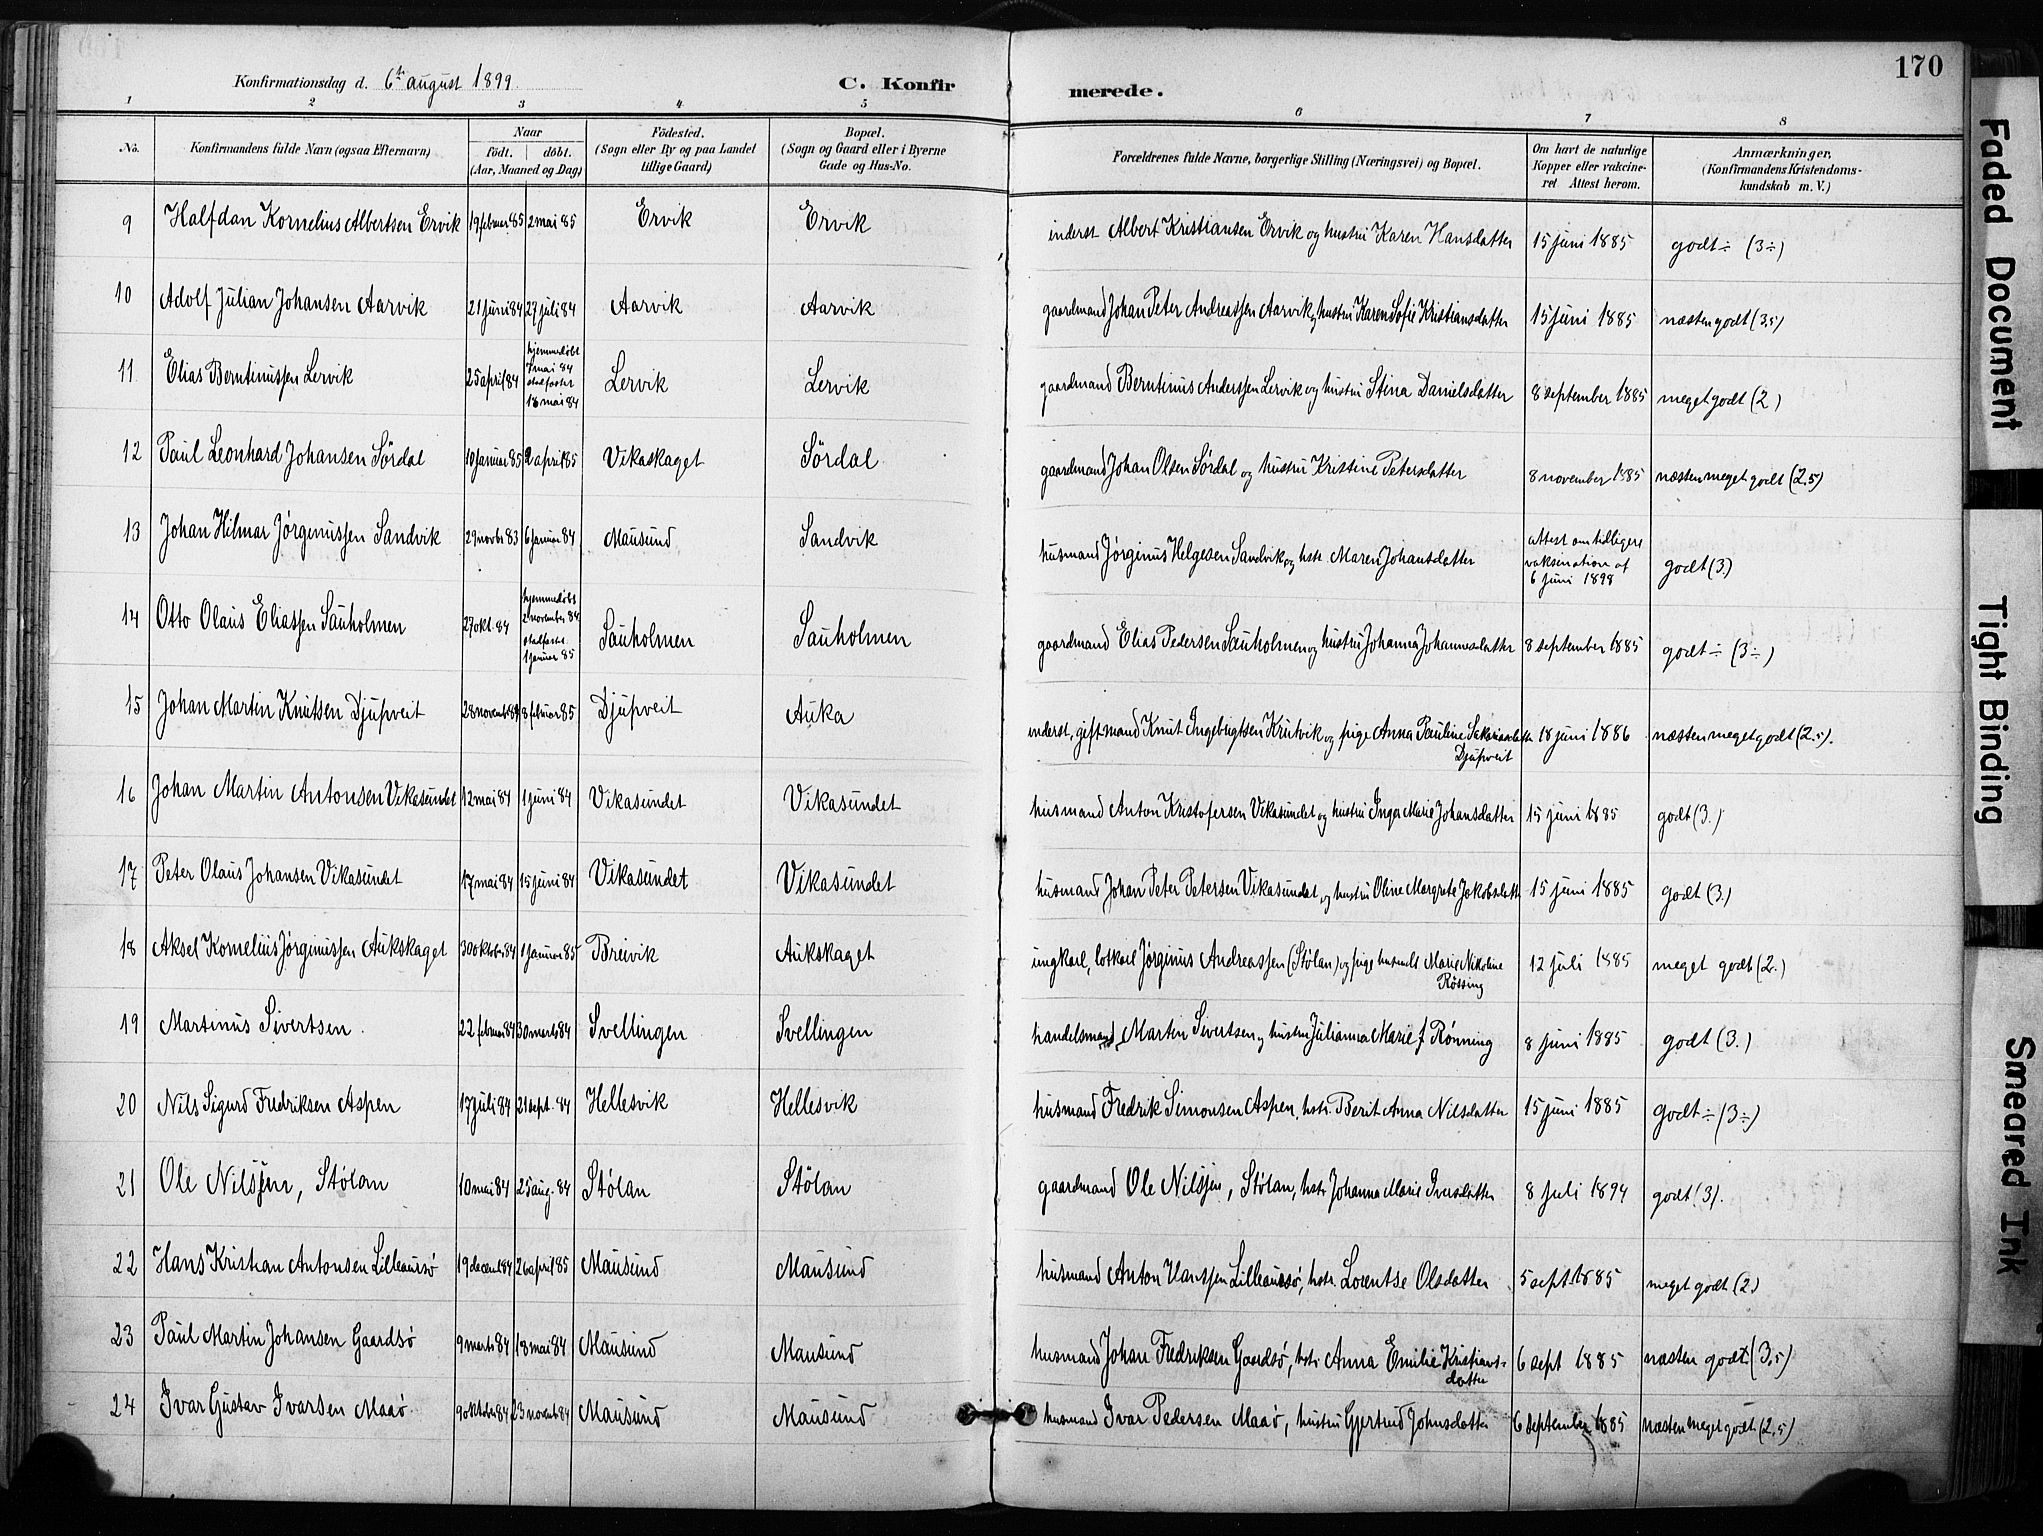 170
Konfirmationsdag d. 6te august 1899.
C. Konfirmerede.
1 2 3 4 5 6 7 8
No. Konfirmandens fulde Navn (ogsaa Efternavn) Naar født. | døbt. (Aar, Maaned og Dag) Fødested. (Sogn eller By og paa Landet tillige Gaard) Bopæl. (Sogn og Gaard eller i Byerne Gade og Hus-No. Forældrenes fulde Navne, borgerlige Stilling (Næringsvei) og Bopæl. Om havt de naturlige Kopper eller vakcineret Attest herom. Anmærkninger, (Konfirmandens Kristendomskundskab m. V.)
9 Halfdan Kornelius Albertsen Ervik 19 februar 85 2 mai 85 Ervik Ervik inderst Albert Kristiansen Ervik og hustru Karen Hansdatter 15 juni 1885 godt ÷ (3÷)
10 Adolf Julian Johansen Aarvik 21 juni 84 27 juli 84 Aarvik Aarvik gaardmand Johan Peter Andreassen Aarvik, hustru Karen Sofie Kristiansdatter 15 juni 1885 næsten godt (3,5)
11 Elias Berntinussen Lervik 25 april 84 hjemmedøbt 7 mai 84 stadfæstet 18 mai 84 Lervik Lervik gaardmand Berntinus Anderssen Lervik og hustru Stina Danielsdatter 8 september 1885 meget godt (2)
12 Paul Leonhard Johansen Sørdal 10 januar 85 2 april 85 Vikaskaget Sørdal gaardmand Johan Olsen Sørdal og hustru Kristine Petersdatter 8 november 1885 næsten meget godt (2,5)
13 Johan Hilmar Jørginussen Sandvik 29 novbr 83 6 januar 84 Mausund Sandvik husmand Jørginus Helgesen Sandvik og hstr. Maren Johansdatter attest om tidligere vaksination af 6 juni 1898 godt (3.)
14 Otto Olaus Eliassen Sauholmen 27 okt. 84 hjemmedøbt 2 november 84 stadfæstet 1 januar 85 Sauholmen Sauholmen gaardmand Elias Pedersen Sauholmen og hustru Johanna Johannesdatter 8 september 1885 godt ÷ (3÷)
15 Johan Martin Knutsen Djupveit 28 novemb 84 8 februar 85 Djupveit Auka inderst, gift mand Knut Ingebrigtsen Krutvik og pige Anna Pauline Sakariasdatter Djupveit 18 juni 1886 næsten meget godt (2.5).
16 Johan Martin Antonsen Vikasundet 12 mai 84 1 juni 84 Vikasundet Vikasundet husmand Anton Kristofersen Vikasundet og hustru Inger Marie Johansdatter 15 juni 1885 godt (3.)
17 Peter Olaus Johansen Vikasundet 17 mai 84 15 juni 84 Vikasundet Vikasundet husmand Johan Peter Petersen Vikasundet og hustru Oline Margrete Jakobsdatter 15 juni 1885 godt (3.)
18 Aksel Kornelius Jørginussen Aukskaget 30 oktober 84 1 januar 85 Breivik Aukskaget ungkarl, lotkarl Jørginus Andreassen (Stølan) og pige Marie Nikoline Røssing 12 juli 1885 meget godt (2.)
19 Martinus Sivertsen. 22 februar 84 30 marts 84 Svellingen Svellingen handelsmand Martin Sivertsen og hustru Julianna Marie f. Rønning 8 juni 1885 godt (3.)
20 Nils Sigurd Fredriksen Aspen 17 juli 84 21 sept. 84 Hellesvik Hellesvik husmand Fredrik Simonsen Aspen, hstr. Berit Anna Nilsdatter 15 juni 1885 godt ÷ (3÷)
21 Ole Nilssen, Stølan 10 mai 84 25 aug. 84 Stølan Stølan gaardmand Ole Nilssen, Stølan, hstr Johanna Marie Iversdatter 8 juli 1894 godt (3).
22 Hans Kristian Antonsen Lilleaursø 19 decemb 84 26 april 85 Mausund Mausund husmand Anton Hanssen Lilleaursø, hstr. Lorentse Olsdatter 5 sept 1885 meget godt (2)
23 Paul Martin Johansen Gaardsø 9 marts 84 18 mai 84 Mausund Mausund husmand Johan Fredriksen Gaardsø, hstr Anna Emilie Kristiansdatter 6 sept 1885 næsten godt (3,5)
24 Ivar Gustav Ivarsen Maaø. 9 oktober 84 23 novemb 84 Mausund Mausund husmand Ivar Pedersen Maaø, hustru Gjertrud Johnsdatter 6 september 1885 næsten meget godt (2,5)
Faded Document
Tight Binding
Smeared Ink